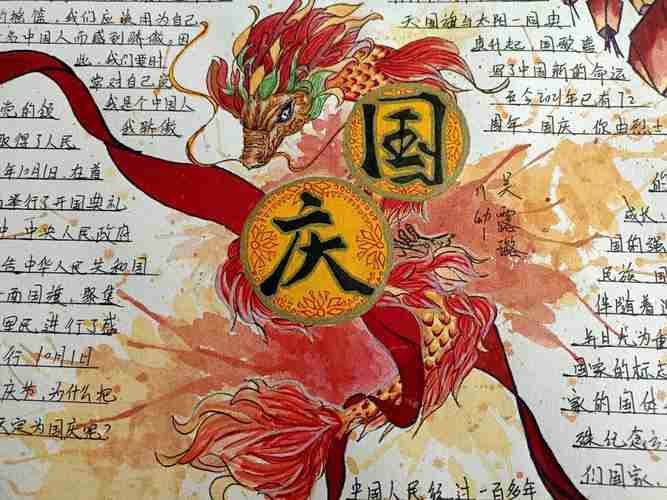 的摇篮，我们应该因为自己
中国人而感到骄傲。因
此，我们要时
常对自己说
我是个中国人
我骄傲
党的领
取得了人民
年10月1日，在首
举行了开国典礼
中，中央人民政府
告中华人民共和国
面国旗，聚集
军民，进行了盛
行 10月1日
庆节，为什么把
天定为国庆呢？
国
庆
吴
露
璐
天国旗与太阳一同由
东升起，国歌意
写了中国新的命运
至今2021年已有72
周年、国庆，你由烈士
成长
国的强
民族，用
伴随着
与日光为
国家的标志
家的国体
殊纪念
们国家、
中国人民经过一百多年